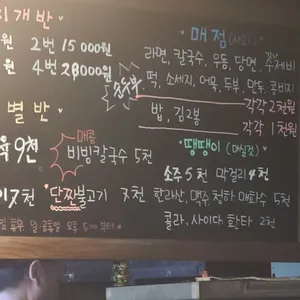 개반
매점 (사리)
원 2번 15000원
라면, 칼국수, 우동, 당면, 수제비
원 4번 28000원
떡, 소세지, 어묵, 두부, 만두, 콩비지
각각 2천원
밥, 김2봉
각각 1천원
별반
매콤
땡땡이 (마실것)
육 9천
비빔칼국수 5천
소주 5천 막걸리 4천
단짠불고기 7천
한라산, 맥주, 청하, 매화수 5천
콜라, 사이다, 환타 2천